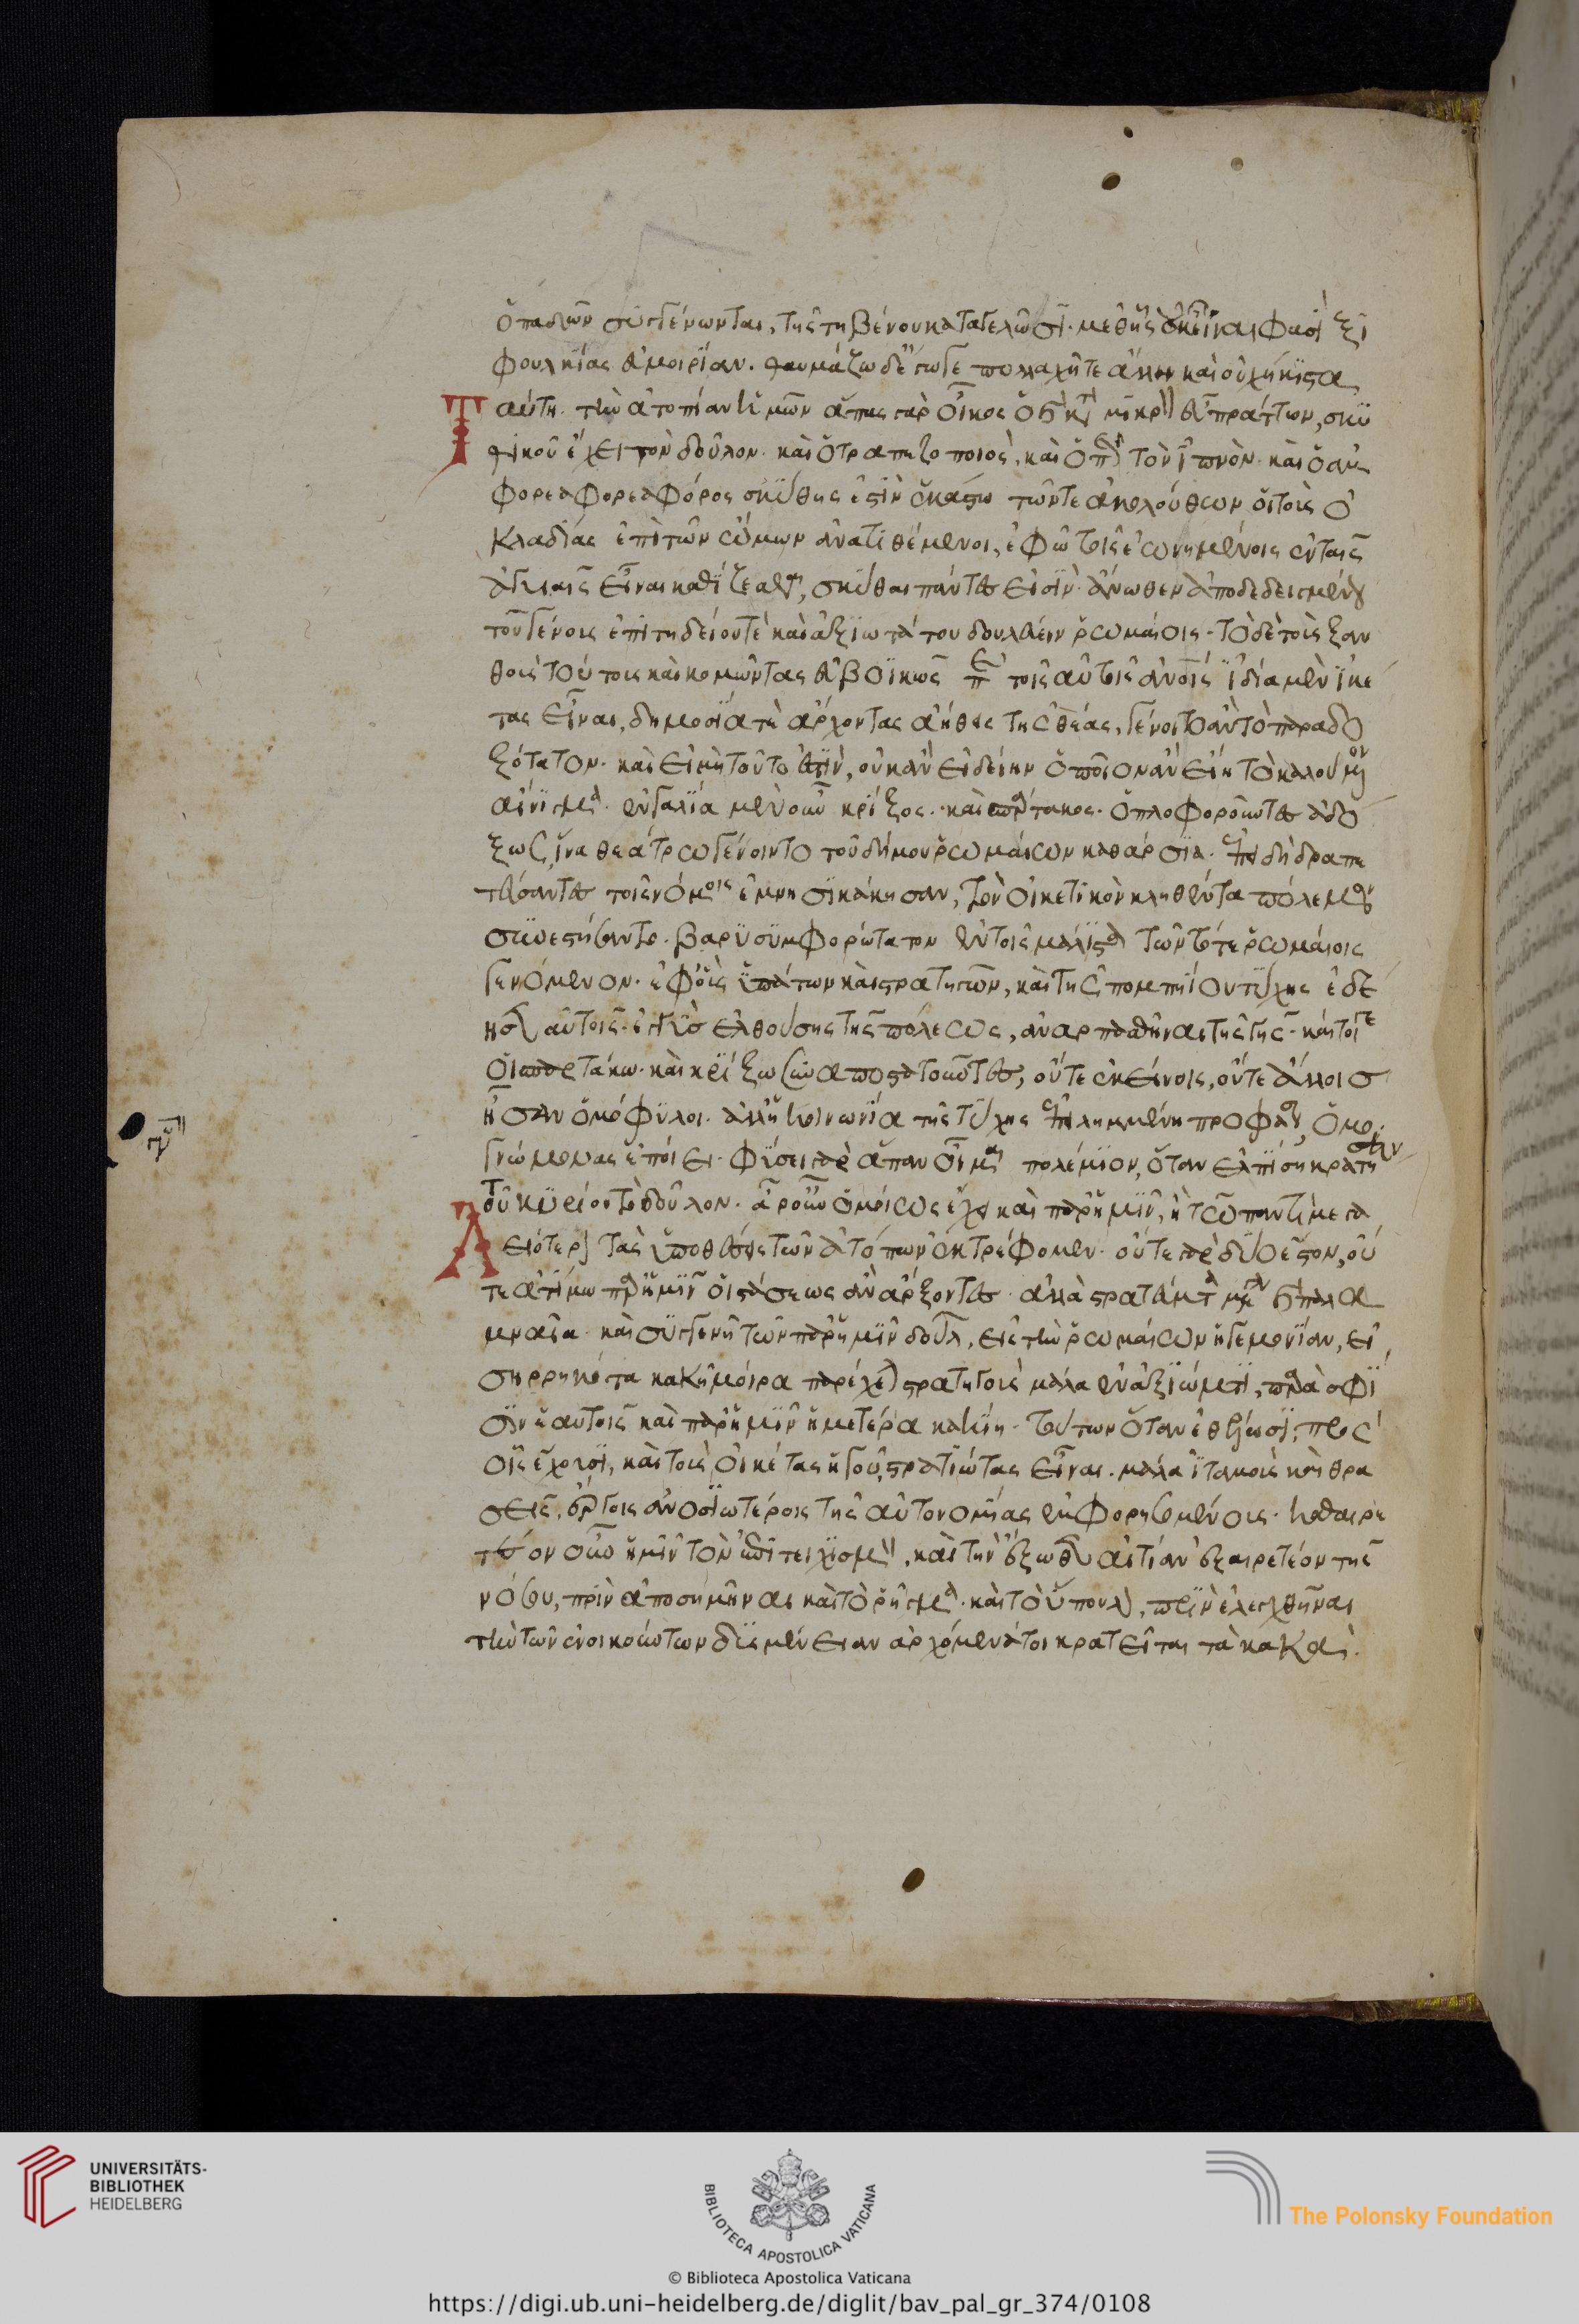 ὀπαδῶν συγγένωνται, τῆς τηβέννου καταγελῶσι. μεθ' ἧς οὐκ εἶναι φασὶ ξι
φουλκίας εὐμοιρίαν. θαυμάζω δ' ἔγωγε πολλαχῇ τε ἄλλῃ καὶ οὐχ ἥκιστα
ταύτῃ τὴν ἀτοπίαν ἡμῶν ἅπας γὰρ οἶκος ὁ καὶ κατὰ μικρὸν εὖ πράττων, σκυ
θικοῦ ἔχει τὸν δοῦλον. καὶ ὁ τραπεζοποιὸς, καὶ ὁ περὶ τὸν ἰπνὸν. καὶ ὁ ἀμ
φορεαφορεαφόρος σκύθης ἐστὶν ἑκάστῳ τῶν τε ἀκολούθων οἱ τοὺς ὀ
κλαδίας ἐπὶ τῶν ὤμων ἀνατιθέμενοι, ἐφ' ὧ τοῖς ἐωνημένοις ἐν ταῖς
ἀγυιαῖς εἶναι καθίζεσθαι, σκύθαι πάντες εἰσὶν. ἄνωθεν ἀποδεδειγμένου
τοῦ γένους ἐπιτηδείου τὲ καὶ ἀξιωτάτου δουλεύειν ῥωμαίοις. τὸ δὲ τοὺς ξαν
θοὺς τούτους καὶ κομῶντας εὐβοϊκῶς παρὰ τοῖς αὐτοῖς ἀνθρώποις ἰδία μὲν ἱκέ
τας εἶναι, δημοσία τὲ ἄρχοντας ἀήθες τῆς θέας, γένοιτο ἂν τὸ παραδο
ξότατον. καὶ εἰ μὴ τοῦτο ἐστὶν, οὐκ ἂν εἰδείην ὁποῖον ἂν εἴη τὸ καλούμενον
αἴνιγμα. ἐν γαλία μὲν οὖν κρίξος. καὶ σπάρτακος. ὁπλοφοροῦντες ἀδό
ξως, ἵνα θεάτρω γένοιντο τοῦ δήμου ῥωμαίων καθάρσια. ἐπειδὴ δραπε
τεύσαντες τοῖς νόμοις ἐμνησικάκησαν, τὸν οἰκετικὸν κληθέντα πόλεμον
συνεστήσαντο. βαρυσυμφορώτατον ἐν τοῖς μάλιστα τῶν τότε ῥωμαίοις
γενόμενον. ἐφ' οἷς ὑπάτων καὶ στρατηγῶν, καὶ τῆς πομπηίου τύχης ἐδέ
ησεν αὐτοῖς. ἐγγὺς ἐλθούσης τῆς πόλεως, ἀναρπασθῆναι τῆς γῆς. καίτοι γε
οἱ σπαρτάκω. καὶ κρίξω συναποστατοῦντες, οὔτε ἐκείνοις, οὔτε ἀλλήλοις
ἦσαν ὁμόφυλοι. ἀλλ' ἡ κοινωνία τῆς τύχης ἐπειλημμένη προφάσεων, ὁμο
γνώμονας ἐποίει. φύσει γὰρ ἅπαν οἶμαι πολέμιον, ὅταν ἐλπίσῃ κρατήσειν
τοῦ κυρίου τὸ δοῦλον. ἆρ' οὖν ὁμοίως ἔχει καὶ παρ' ἡμῖν, ἢ τῷ παντὶ μεγα
λειότερον τὰς ὑποθέσεις τῶν ἀτόπων ἐκτρέφομεν. οὔτε γὰρ δύο ἔστον, οὔ
τε ἀτίμω παρ' ἡμῖν οἱ στάσεως ἂν ἄρξοντες. ἀλλὰ στρατεύματα μεγάλα καὶ παλα
μναῖα. καὶ συγγενῆ τῶν παρ' ἡμῖν δούλων, εἰς τὴν ῥωμαίων ἡγεμονίαν, εἰ
σηρρηκότα κακῇ μοίρα παρέχεται στρατηγοὺς μάλα ἐν ἀξιώματι, παρὰ σφί
σιν ἑαυτοῖς καὶ παρ' ἡμῖν ἡμετέρα κακίη. τούτων ὅταν ἐθελήσωσι, πρὸς
οἷς ἔχουσι, καὶ τοὺς οἰκέτας ἡγοῦ, στρατιώτας εἶναι. μάλα ἰταμοὺς καὶ θρα
σεῖς, ἔργοις ἀνοσιωτέροις τῆς αὐτονομίας ἐμφορησομένοις. καθαιρε
τέον οὖν ἡμῖν τὸν ἐπιτειχισμὸν, καὶ τὴν ἔξωθεν αἰτίαν ἐξαιρετέον τῆς
νόσου, πρὶν ἀποσημῆναι καὶ τὸ ῥῆγμα. καὶ τὸ ὕπουλον, πρὶν ἐλεγχθῆναι
τὴν τῶν ἐνοικούντων δυσμένειαν ἀρχόμενά τοι κρατεῖται τὰ κακά.
UNIVERSITÄTS-
BIBLIOTHEK
HEIDELBERG
BIBLIOTECA APOSTOLICA VATICANA
The Polonsky Foundation
© Biblioteca Apostolica Vaticana
https://digi.ub.uni-heidelberg.de/diglit/bav_pal_gr_374/0108